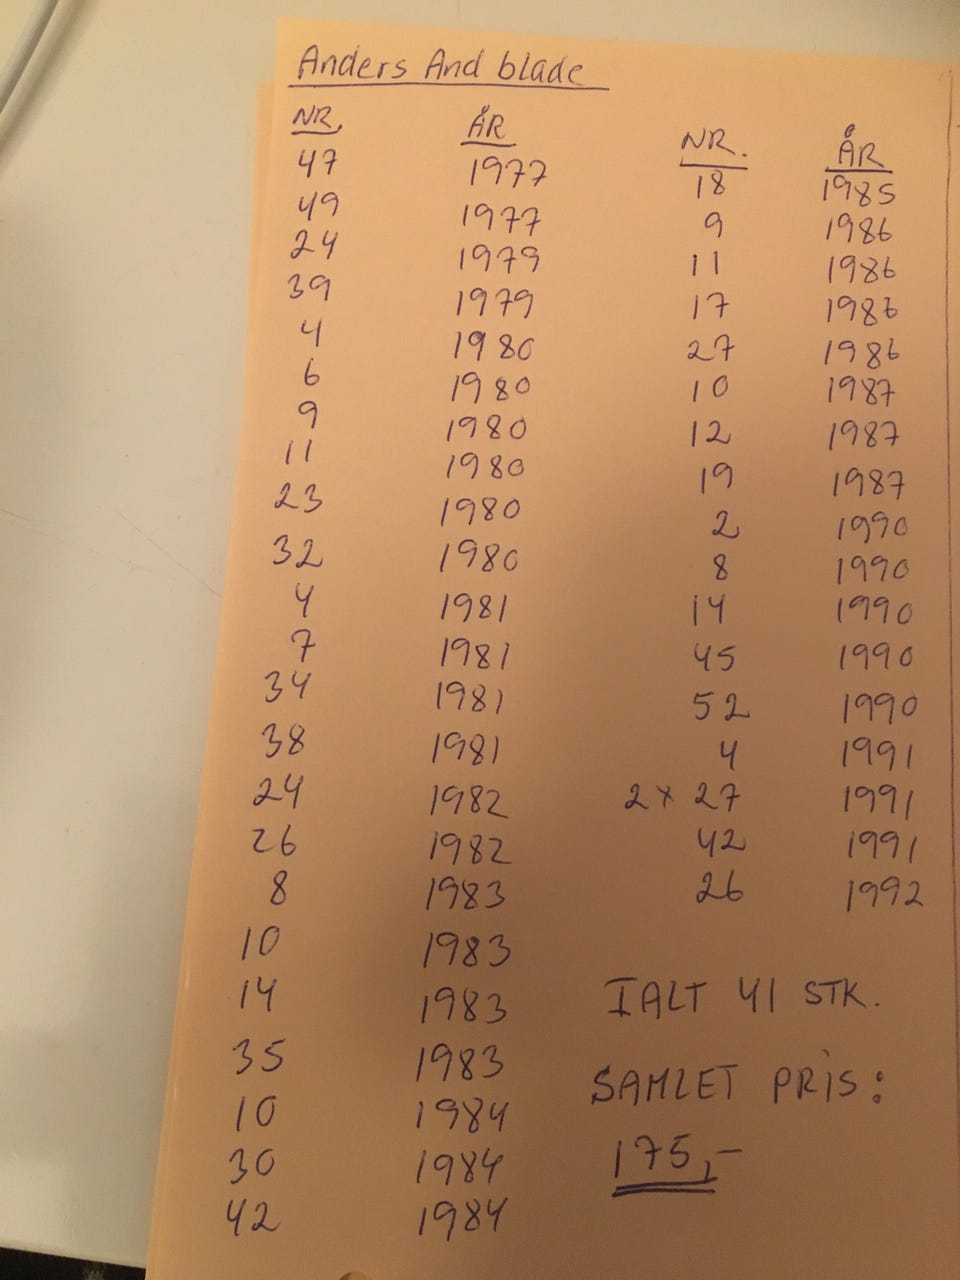 Anders And blade
NR. ÅR
47 1977
49 1977
24 1979
39 1979
4 1980
6 1980
9 1980
11 1980
23 1980
32 1980
4 1981
7 1981
34 1981
38 1981
24 1982
26 1982
8 1983
10 1983
14 1983
35 1983
10 1984
30 1984
42 1984
NR. ÅR
18 1985
9 1986
11 1986
17 1986
27 1986
10 1987
12 1987
19 1987
2 1990
8 1990
14 1990
45 1990
52 1990
4 1991
2x 27 1991
42 1991
26 1992
IALT 41 STK.
SAMLET PRIS:
175,-